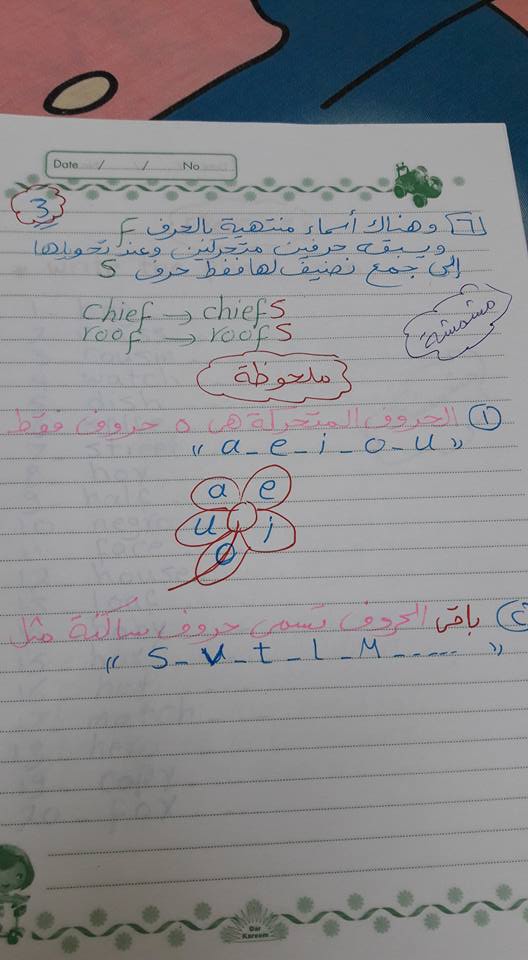 Date / / No
3
٦ وهناك أسماء منتهية بالحرف F
ويسبقه حرفين متحركين وعند تحويلها
إلى جمع نضيف لها فقط حرف S
chief → chiefS
roof → roofS
مشمشة
ملحوظة
١ الحروف المتحركة هى ٥ حروف فقط
" a - e - i - o - u "
a e
u i
o
٢ باقى الحروف تسمى حروف ساكنة مثل
" S - v - t - L - M ------ "
Dar
Kareem